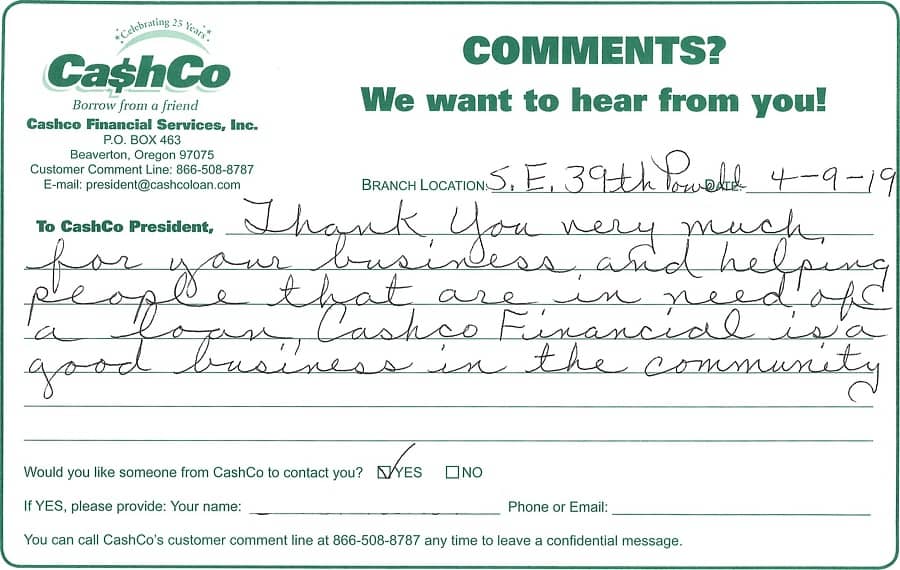 *Celebrating 25 Years*
Ca$hCo
Borrow from a friend
Cashco Financial Services, Inc.
P.O. BOX 463
Beaverton, Oregon 97075
Customer Comment Line: 866-508-8787
E-mail: president@cashcoloan.com
COMMENTS?
We want to hear from you!
BRANCH LOCATION: S. E. 39th Powell DATE: 4-9-19
To CashCo President, Thank You very much
for your business and helping
people that are in need of
a loan, Cashco Financial is a
good business in the community
Would you like someone from CashCo to contact you? YES NO
If YES, please provide: Your name: Phone or Email:
You can call CashCo's customer comment line at 866-508-8787 any time to leave a confidential message.